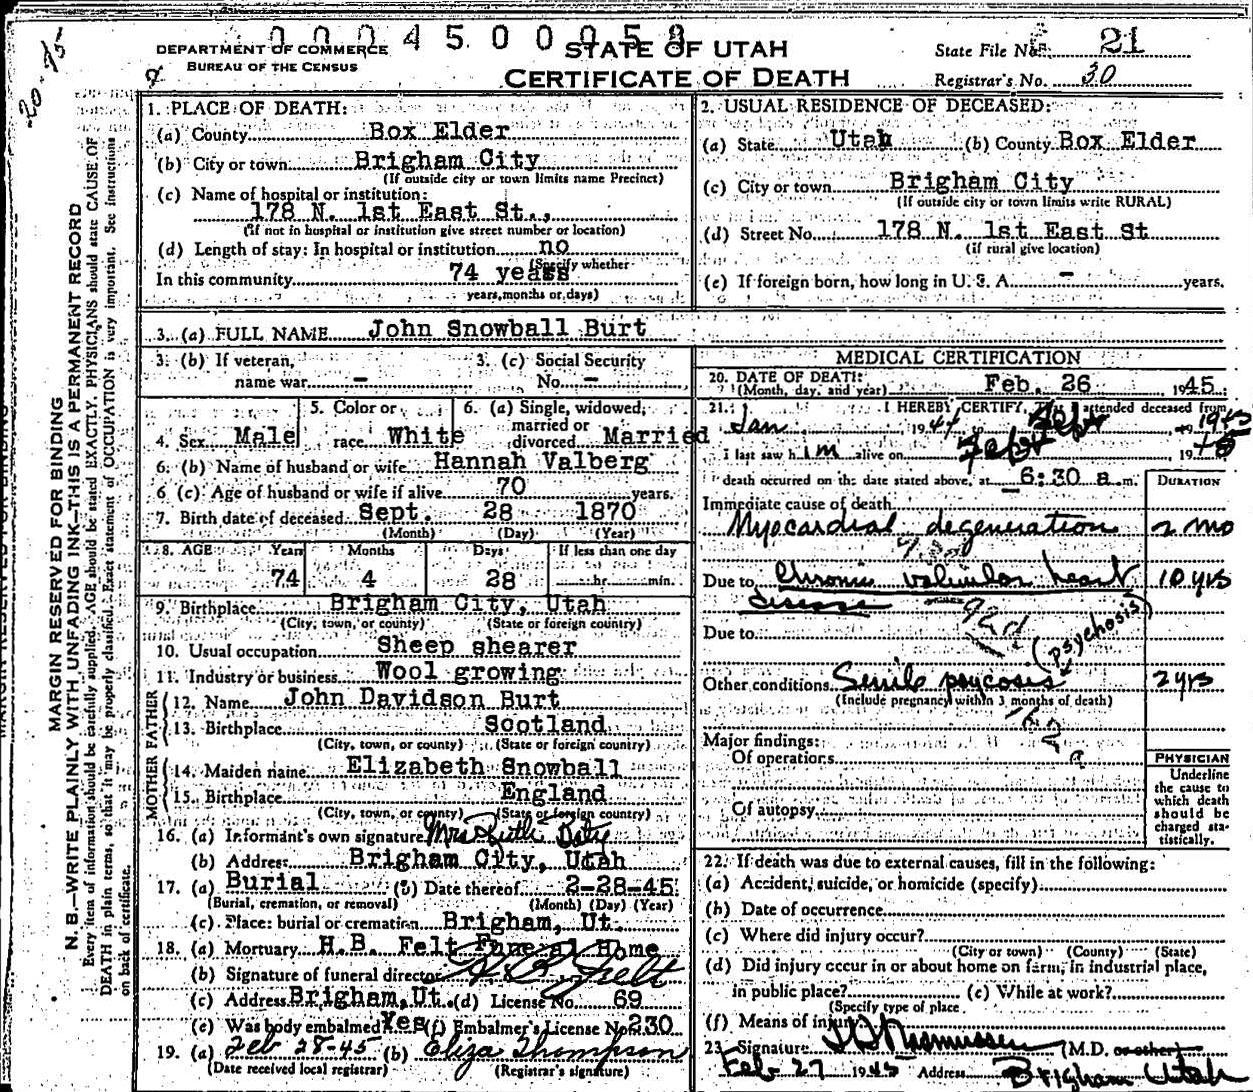 0004500058
DEPARTMENT OF COMMERCE
BUREAU OF THE CENSUS
STATE OF UTAH
CERTIFICATE OF DEATH
State File No. 21
Registrar's No. 30
MARGIN RESERVED FOR BINDING
N. B.—WRITE PLAINLY WITH UNFADING INK—THIS IS A PERMANENT RECORD
Every item of information should be carefully supplied. AGE should be stated EXACTLY. PHYSICIANS should state CAUSE OF
DEATH in plain terms, so that it may be properly classified. Exact statement of OCCUPATION is very important. See instructions
on back of certificate.
1. PLACE OF DEATH:
(a) County Box Elder
(b) City or town Brigham City
(If outside city or town limits name Precinct)
(c) Name of hospital or institution:
178 N. 1st East St.,
(If not in hospital or institution give street number or location)
(d) Length of stay: In hospital or institution no
(Specify whether
In this community 74 years
years, months or days)
2. USUAL RESIDENCE OF DECEASED:
(a) State Utah (b) County Box Elder
(c) City or town Brigham City
(If outside city or town limits write RURAL)
(d) Street No. 178 N. 1st East St
(If rural give location)
(e) If foreign born, how long in U. S. A. - years.
3. (a) FULL NAME John Snowball Burt
3. (b) If veteran, name war -
3. (c) Social Security No. -
4. Sex Male
5. Color or race White
6. (a) Single, widowed, married or divorced Married
6. (b) Name of husband or wife Hannah Valberg
6 (c) Age of husband or wife if alive 70 years.
7. Birth date of deceased Sept. 28 1870
(Month) (Day) (Year)
8. AGE Years Months Days If less than one day
74 4 28 hr. min.
9. Birthplace Brigham City, Utah
(City, town, or county) (State or foreign country)
10. Usual occupation Sheep shearer
11. Industry or business Wool growing
FATHER
12. Name John Davidson Burt
13. Birthplace Scotland
(City, town, or county) (State or foreign country)
MOTHER
14. Maiden name Elizabeth Snowball
15. Birthplace England
(City, town, or county) (State or foreign country)
16. (a) Informant's own signature Mrs Ruth
(b) Address Brigham City, Utah
17. (a) Burial (b) Date thereof 2-28-45
(Burial, cremation, or removal) (Month) (Day) (Year)
(c) Place: burial or cremation Brigham, Ut.
18. (a) Mortuary H.B. Felt Funeral Home
(b) Signature of funeral director H B Felt
(c) Address Brigham, Ut. (d) License No. 69
(e) Was body embalmed Yes (f) Embalmer's License No. 230
19. (a) Feb 28-45 (b) Eliza Thompson
(Date received local registrar) (Registrar's signature)
MEDICAL CERTIFICATION
20. DATE OF DEATH:
(Month, day, and year) Feb. 26, 1945.
21. I HEREBY CERTIFY, attended deceased from
Jan 1944 1945
I last saw him alive on Feb 1945
death occurred on the date stated above, at 6:30 a.m.
DURATION
Immediate cause of death
Myocardial degeneration 2 mo
Due to Chronic valvular heart 10 yrs
disease
92d
Due to
(psychosis)
Other conditions Senile psycosis 2 yrs
(Include pregnancy within 3 months of death)
162
a
Major findings:
Of operations
Of autopsy
PHYSICIAN
Underline
the cause to
which death
should be
charged sta-
tistically.
22. If death was due to external causes, fill in the following:
(a) Accident, suicide, or homicide (specify)
(b) Date of occurrence
(c) Where did injury occur?
(City or town) (County) (State)
(d) Did injury occur in or about home on farm, in industrial place,
in public place? (e) While at work?
(Specify type of place
(f) Means of injury
23. Signature Rasmussen (M.D. or other)
Feb 27 1945 Address Brigham Utah